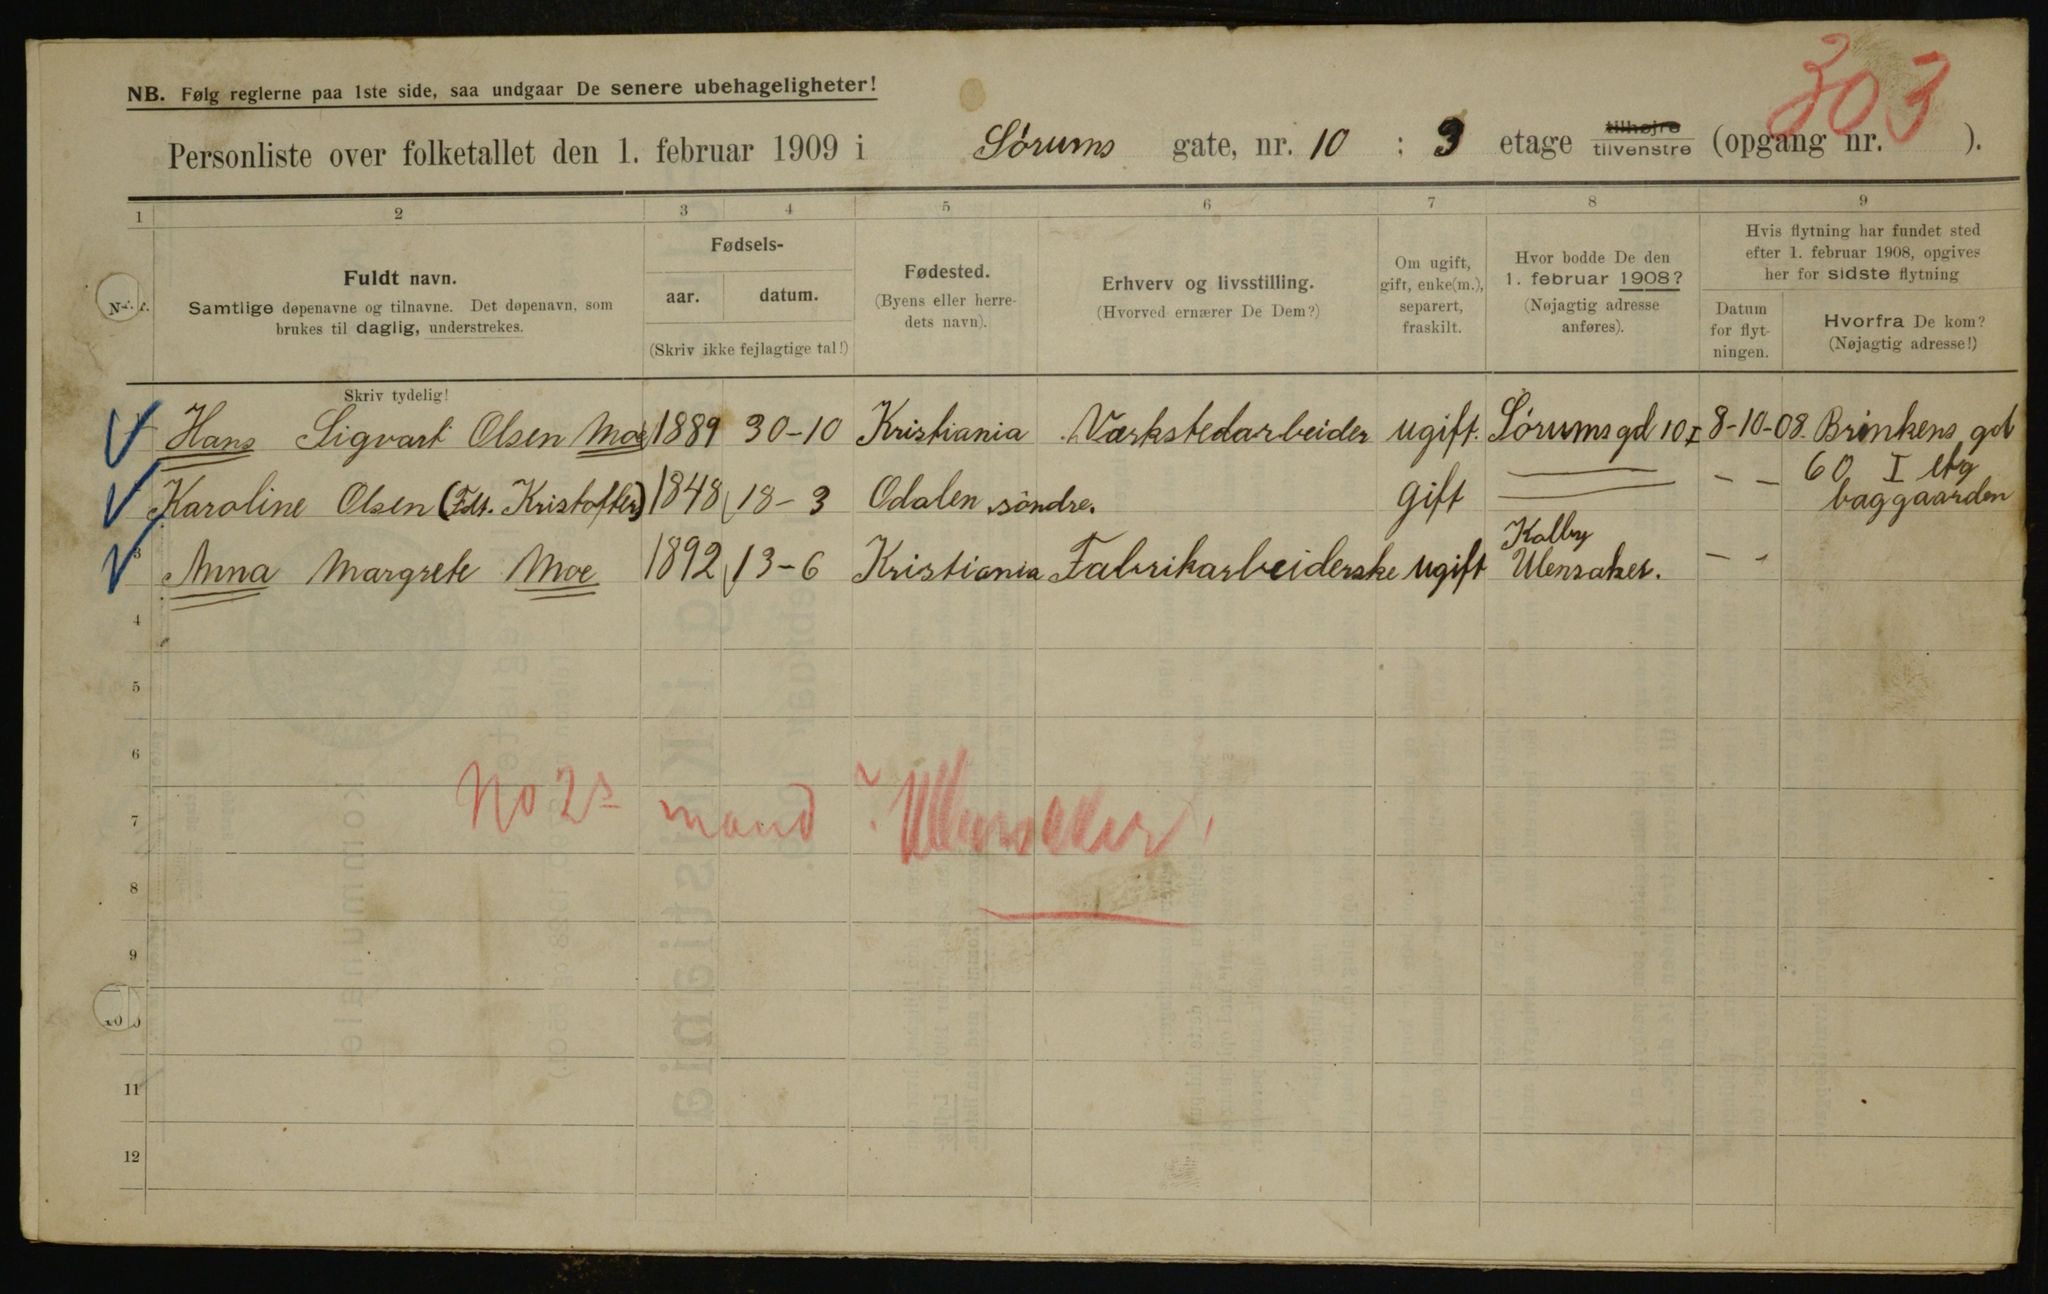 303
NB. Følg reglerne paa 1ste side, saa undgaar De senere ubehageligheter!
Personliste over folketallet den 1. februar 1909 i Sørums gate, nr. 10 : 3 etage tilhøjre tilvenstre (opgang nr. ).
1 2 3 4 5 6 7 8 9
Nr. Fuldt navn. Samtlige døpenavne og tilnavne. Det døpenavn, som brukes til daglig, understrekes.
Fødsels- aar. datum. (Skriv ikke fejlagtige tal!)
Fødested. (Byens eller herredets navn).
Erhverv og livsstilling. (Hvorved ernærer De Dem?)
Om ugift, gift, enke(m.), separert, fraskilt.
Hvor bodde De den 1. februar 1908? (Nøjagtig adresse anføres).
Hvis flytning har fundet sted efter 1. februar 1908, opgives her for sidste flytning
Datum for flytningen.
Hvorfra De kom? (Nøjagtig adresse!)
Skriv tydelig!
Hans Sigvart Olsen Moe 1889 30-10 Kristiania Værkstedarbeider ugift. Sørumsgd 10 I 8-10-08. Brinkens gd
Karoline Olsen (Fdt. Kristoffer) 1848 18-3 Odalen søndre. gift — — — 60 I etg
baggaarden
3 Anna Margrete Moe 1892 13-6 Kristiania Fabrikarbeiderske ugift Kalby Ulensaker. — -
4
5
6
No 2s mand ? Ullensaker!
7
8
9
10
11
12